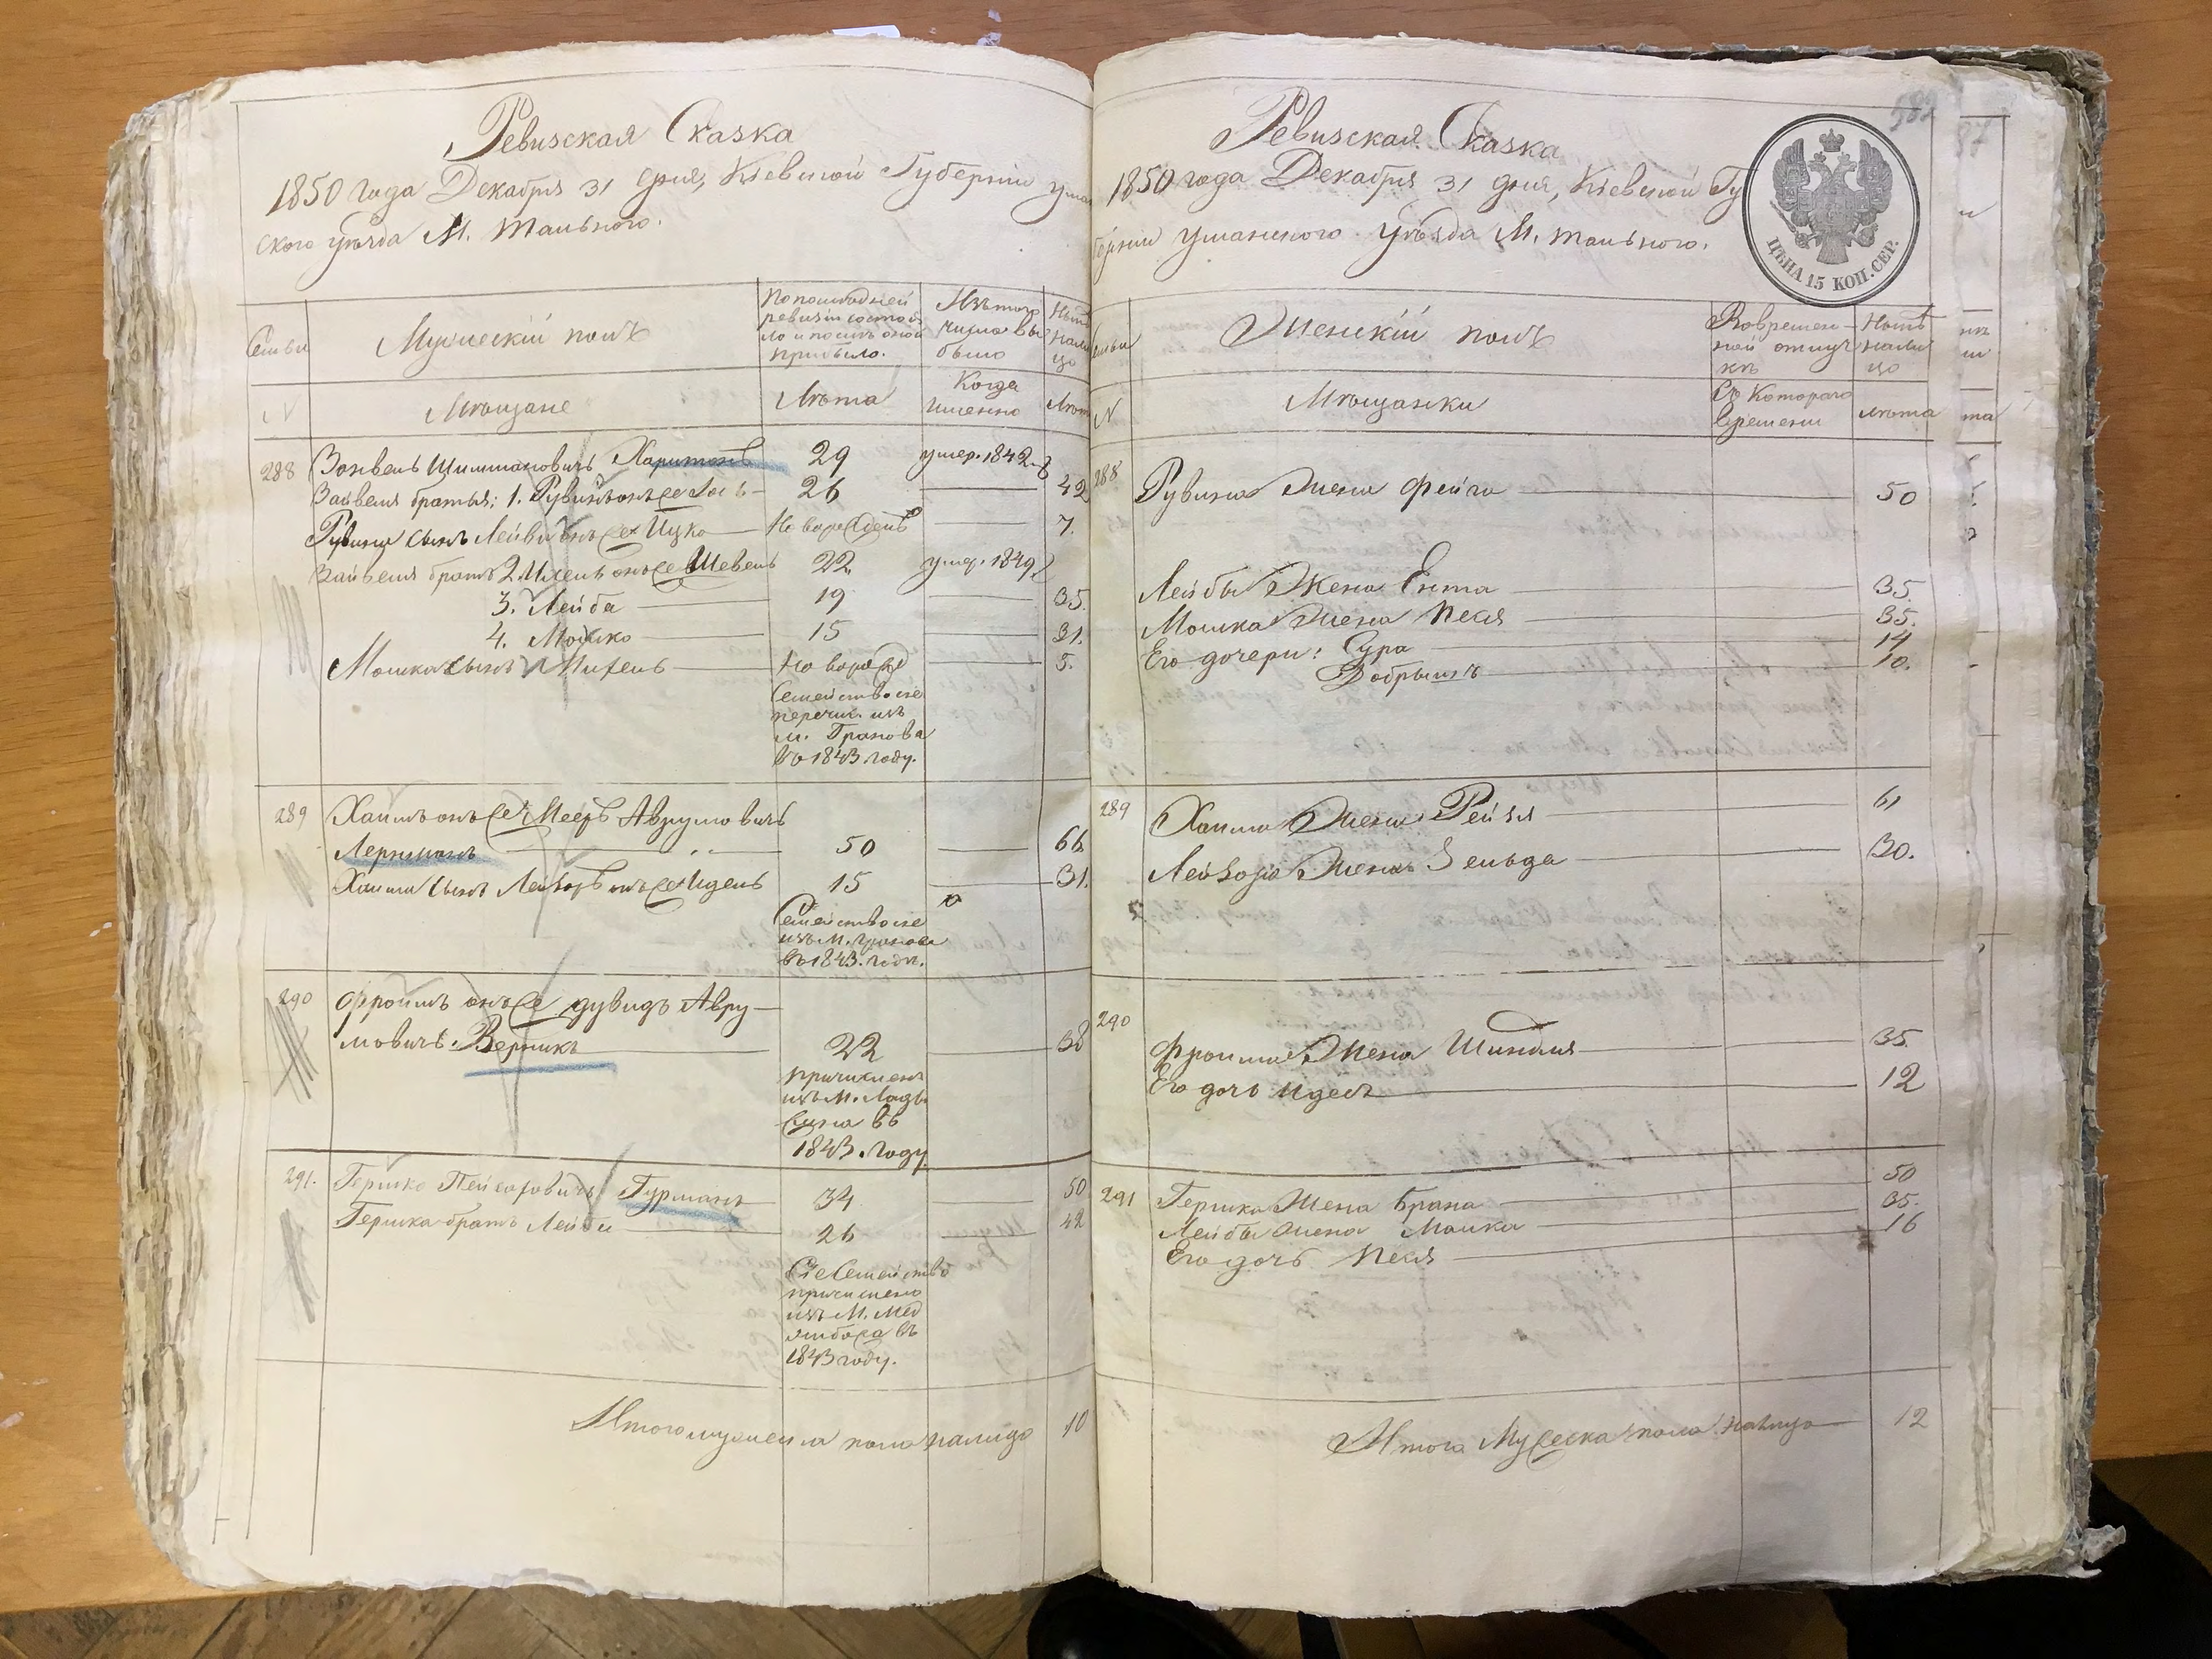 Ревизская Сказка
1850 года Декабря 31 дня, Кіевской Губерніи Уман
ского уѣзда М. Тального.
Семьи
Мужескій полъ
По последней
ревизіи состоя
ло и послѣ оной
прибыло.
Изъ того
числа вы
было
Нынѣ
нали
цо
N
Мѣщане
Лѣта
Когда
именно
Лѣта
288
Зайвель Шимшановичъ Харитонъ
29
умер. 1842.
Зайвеля братья: 1. Рувинъ онъ же
26
42
Рувина сынъ Лейви онъ же Ицко
Новорожденъ
7.
Зайвеля братъ 2. онъ же Шевель
22
умер. 1849
3. Лейба
19
35.
4. Мошко
15
31.
Мошка сынъ Михель
Новорож
5.
Семейство сіе
перечис. изъ
м. Гранова
въ 1843 году.
289
Хаимъ онъ же Мееръ Аврумовичъ
Лернманъ
50
66.
Хаима сынъ Лейзоръ онъ же Идель
15
31.
Семейство сіе
изъ М. Гранова
въ 1843. годѣ.
290
Фроимъ онъ же Дувидъ Авру-
мовичъ. Верникъ
22
38
причислен
изъ М. Лады
жина въ
1843. году
291.
Гершко Пейсаховичъ Гурманъ
34
50
Гершка братъ Лейба
26
42
Сіе Семейство
причислено
изъ М. Мед
жибожа въ
1843 году.
Итого мужеска пола налицо
10
Ревизская Сказка
1850 года Декабря 31 дня, Кіевской Гу
берніи Уманского Уѣзда М. Тального.
582
ЦѢНА 15 КОП. СЕР.
Семьи
Женскій полъ
Во времен-
ной отлуч
кѣ
Нынѣ
нали
цо
N
Мѣщанки
Съ Котораго
времени
лѣта
288
Рувина Жена Фейга
50
Лейбы Жена Ента
35.
Мошка Жена Песя
35.
Его дочери: Сура
14
Добрышъ
10.
289
Хаима Жена Рейзя
61
Лейзора Жена Зельда
30.
290
Фроима Жена Шиндля
35.
Его дочь Идесъ
12
291
Гершка Жена Брана
50
Лейбы жена Малка
35.
Его дочь Песя
16
Итого Мужеска пола налицо
12